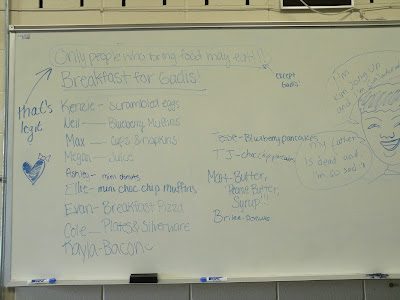 Only people who bring food may eat!!
Breakfast for Gadis!
except
that's
legit
Kenzie - scrambled eggs
Neil - Blueberry Muffins
Max - cups & napkins
Megan - Juice
Ashley - mini donuts
Ellie - mini choc chip muffins
Evan - Breakfast Pizza
Cole - Plates & Silverware
Kayla - Bacon
Tessie - Blueberry pancakes
TJ - choc chip pancakes
Matt - Butter,
Peanut Butter,
Syrup!!!
Donuts
I'm
is dead and
im so sad